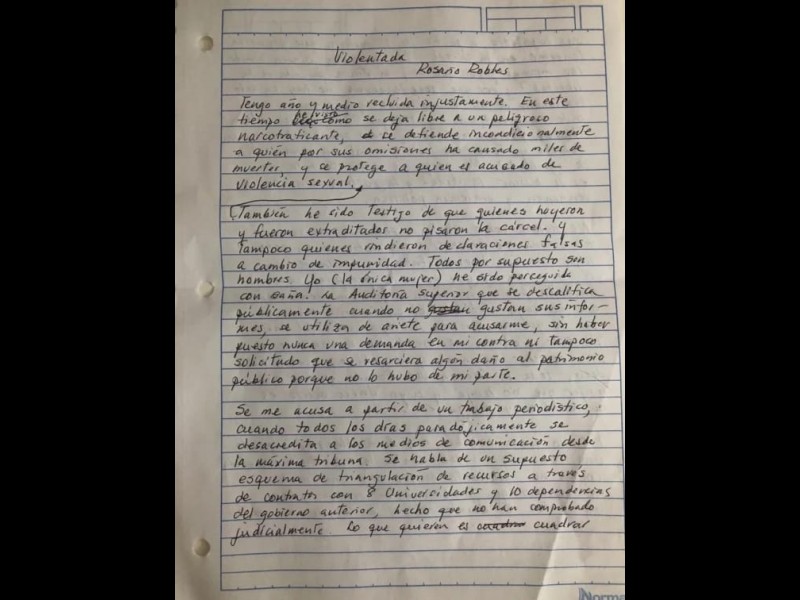 Violentada
Rosario Robles
Tengo año y medio recluida injustamente. En este
tiempo he visto cómo se deja libre a un peligroso
narcotraficante, se defiende incondicionalmente
a quién por sus omisiones ha causado miles de
muertes, y se protege a quien es acusado de
violencia sexual.
También he sido testigo de que quienes huyeron
y fueron extraditados no pisaron la cárcel. Y
tampoco quienes rindieron declaraciones falsas
a cambio de impunidad. Todos por supuesto son
hombres. Yo (la única mujer) he sido perseguida
con saña. La Auditoría Superior que se descalifica
públicamente cuando no gustan sus infor-
mes, se utiliza de ariete para acusarme, sin haber
puesto nunca una demanda en mi contra ni tampoco
solicitado que se resarciera algún daño al patrimonio
público porque no lo hubo de mi parte.
Se me acusa a partir de un trabajo periodístico,
cuando todos los días paradójicamente se
desacredita a los medios de comunicación desde
la máxima tribuna. Se habla de un supuesto
esquema de triangulación de recursos a través
de contratos con 8 Universidades y 10 dependencias
del gobierno anterior, hecho que no han comprobado
judicialmente. Lo que quieren es cuadrar
Norma